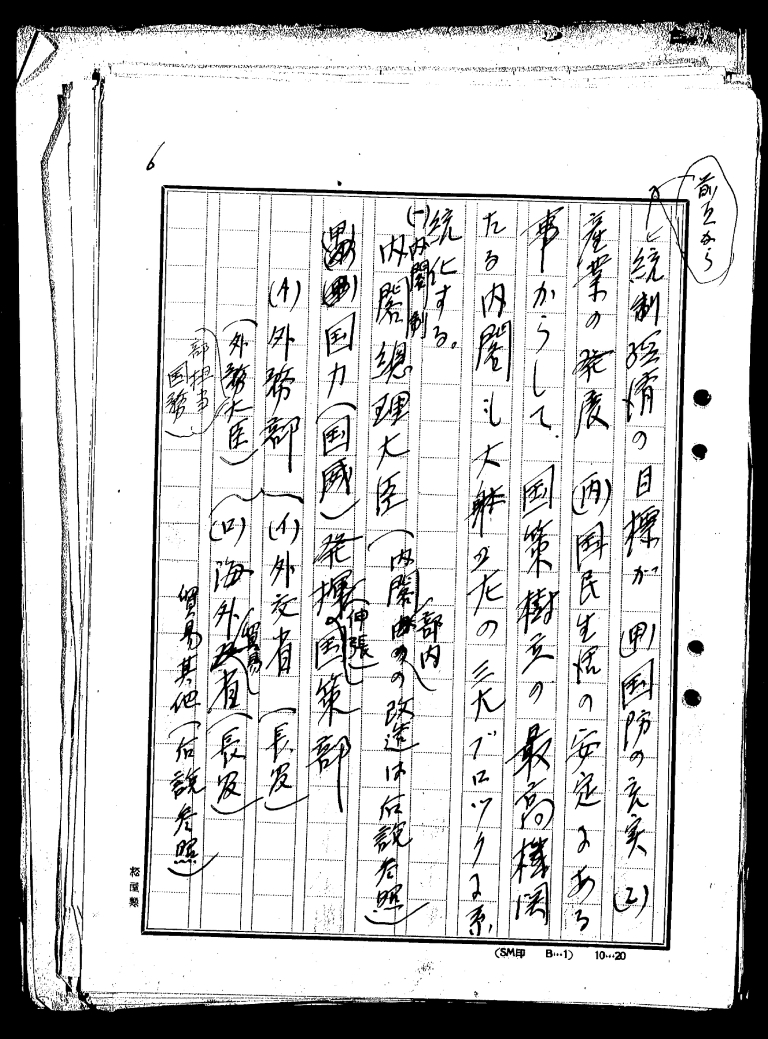 前頁から
統制経済の目標が(甲)国防の充実(乙)
産業の発度(丙)国民生活の安定にある
事からして、国策樹立の最高機関
たる内閣も大体の三大ブロックに系
統化する。
(一)内閣制
内閣総理大臣(内閣部内の改造は后説参照)
(甲)国力(国威)発揮(伸張)国策部
(A)外務部 (イ)外交省(長官)
(外務大臣) (ロ)海外貿易省(長官)
部担当
国務
貿易其他(后説参照)
6
(SM印 B…1) 10…20